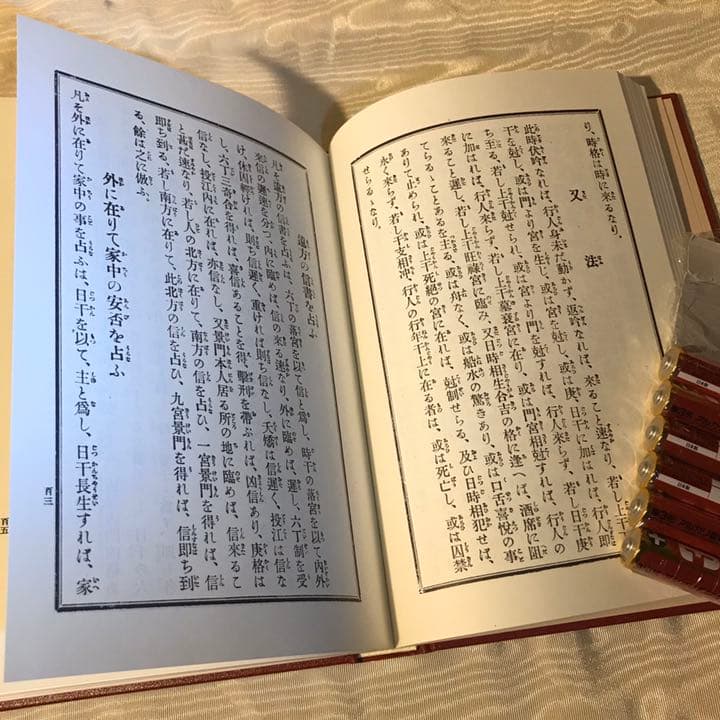 り、時格は時に來るなり、
又法
此時伏吟なれば、行人身未だ動かず、返吟なれば、來ること速なり、若し上干
干を尅し、或は門より宮を生じ、或は宮を尅し、或は庚、日干に加はれば、行人即
ち至る、若し上干尅せられ、或は宮より門を尅すれば、行人來らず、若し庚、日干
に加はれば、行人來らず、若し上干墓衰宮に在り、或は門宮相尅すれば、行人の
來ること遲し、若し上干旺祿宮に臨み、又日時相生合吉の格に逢へば、酒席に阻
てらるゝことあるを主る、或は舟なく、或は船水の驚きあり、或は口舌喜悅の事
ありて止められ、或は上干死絕の宮に在れば、尅制せらる、及ひ日時相犯せば、
永く來らず、若し干支相冲、行人の行年干上に在る者は、或は死亡し、或は囚禁
せらるゝなり、
遠方の信書を占ふ
凡そ遠方の信書を占ふは、六丁の落宮を以て信と爲し、時干の落宮を以て內外
來信の遲速を分つ、內に臨めば、信の來る速なり、外に臨めば、遲し、六丁制を受
け、休囚輕ければ、則ち信遲く、重ければ則ち信なし、天㷼は信遲く、投江は信な
し、六丁、奇合を得れば、喜信あることを得、擊刑を帶ぶれば、凶信あり、庚格は
信なし、投江內に在れば、亦信なし、又景門本人居る所の地に臨めば、信來るこ
と甚だ速なり、若し人の北方に在りて、南方の信を占ひ、一宮景門を得れば、信
即ち到る、若し南方に在りて、此北方の信を占ひ、九宮景門を得れば、信即ち到
る、餘は之に倣ふ、
外に在りて家中の安否を占ふ
凡そ外に在りて家中の事を占ふは、日干を以て、主と爲し、日干長生すれば、家
百三
百五
日本製
日本製
日本製